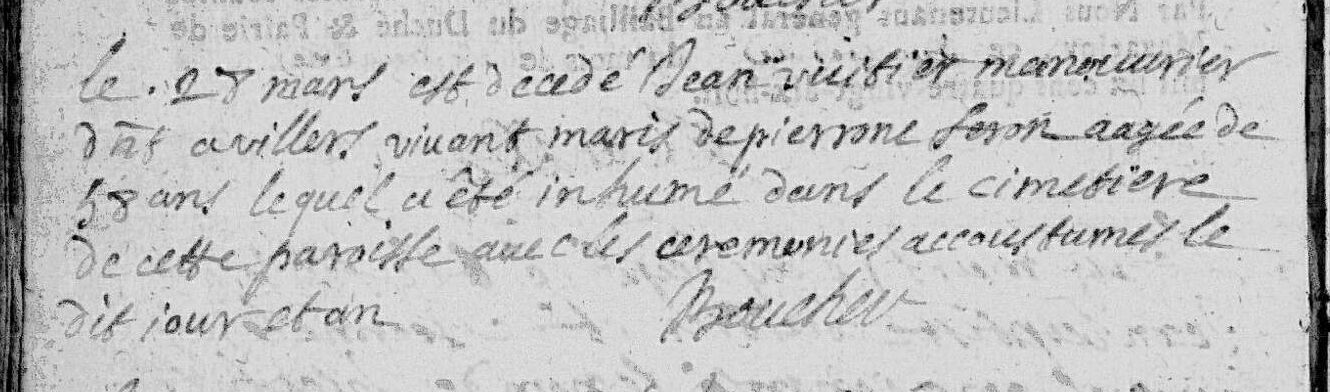 le . 28 mars est decedé Jean vuitier manouurier
dnt a villers viuant maris de pierrone feron aagée de
58 ans lequel a êté inhumé dans le cimetiere
de cette paroisse auec les ceremonies accoustumés le
dit iour et an Boucher